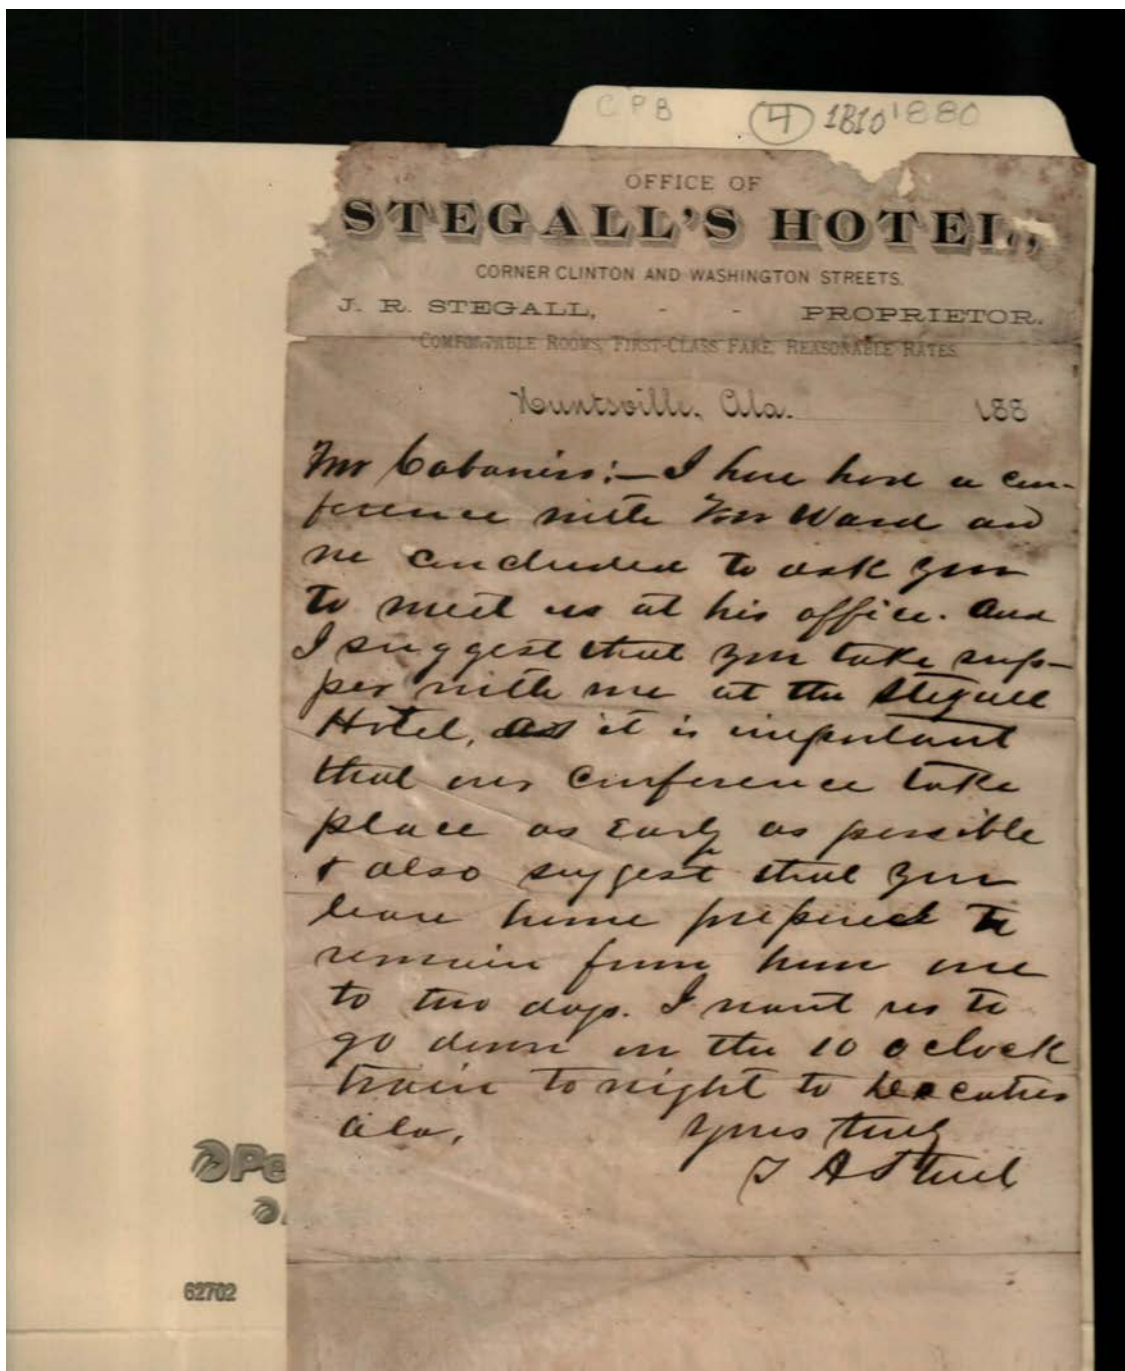 CPB 4 1B10 1880
OFFICE OF
STEGALL'S HOTEL,
CORNER CLINTON AND WASHINGTON STREETS.
J. R. STEGALL, - - PROPRIETOR.
COMFORTABLE ROOMS, FIRST-CLASS FARE, REASONABLE RATES.
Huntsville, Ala. 188
Mr Cabaniss:— I have had a con-
ference with Mr Ward and
we concluded to ask you
to meet us at his office. And
I suggest that you take sup-
per with me at the Stegall
Hotel, as it is important
that our conference take
place as early as possible
& also suggest that you
leave home prepared to
remain from home one
to two days. I want us to
go down on the 10 o clock
train tonight to Decatur
Ala. Yours truly
62702